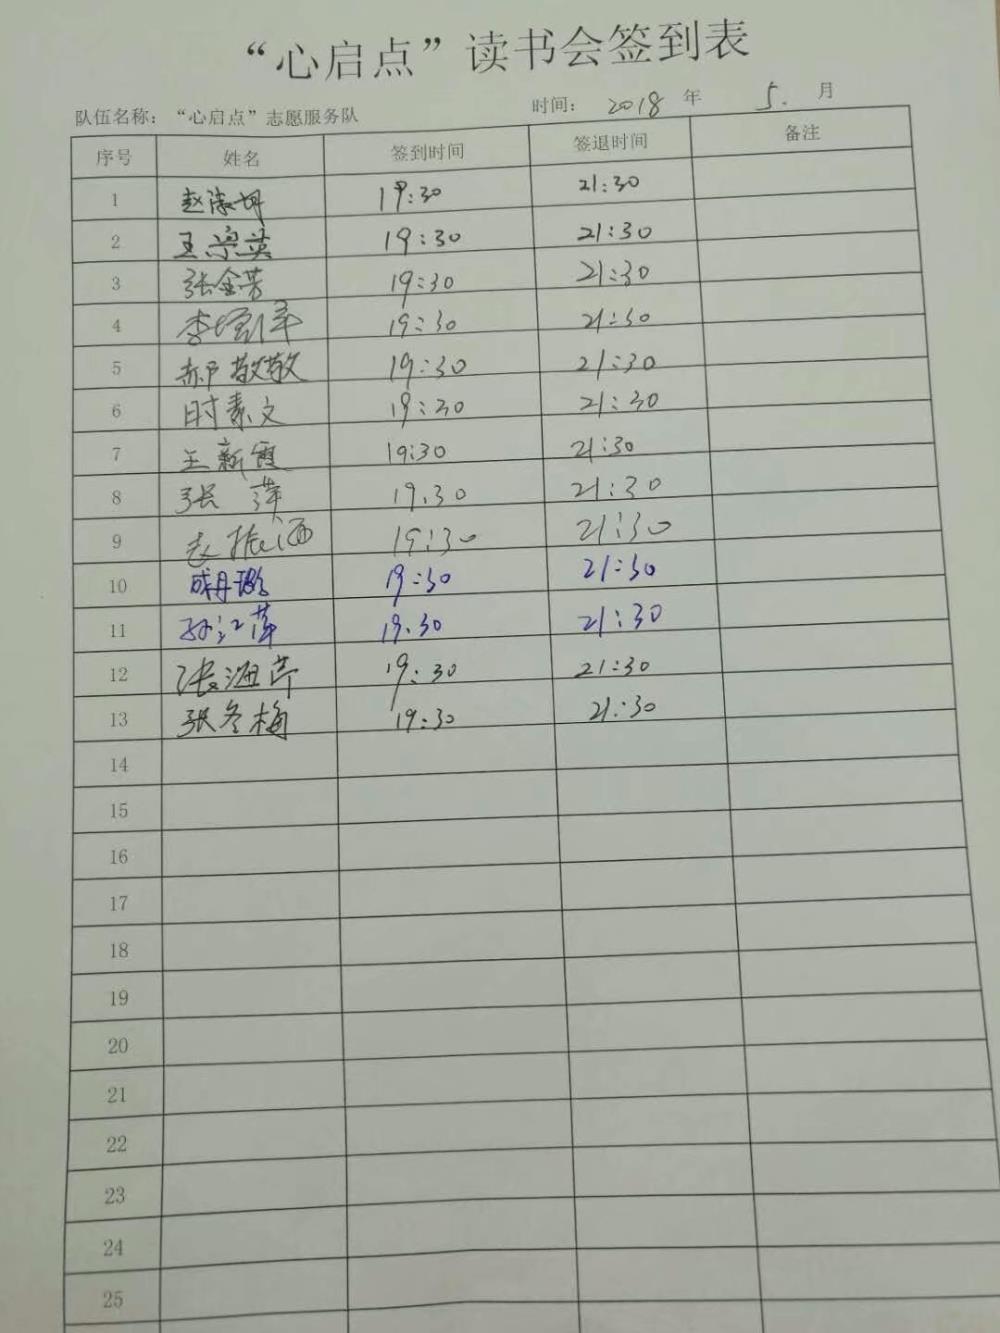 “心启点”读书会签到表
队伍名称：“心启点”志愿服务队 时间： 2018 年 5. 月
序号 姓名 签到时间 签退时间 备注
1 赵 19:30 21:30
2 王 英 19:30 21:30
3 张金芳 19:30 21:30
4 李 19:30 21:30
5 郝敬敬 19:30 21:30
6 时素文 19:30 21:30
7 王新霞 19:30 21:30
8 张 萍 19.30 21:30
9 振 19:30 21:30
10 成丹璐 19:30 21:30
11 孙江萍 19.30 21:30
12 张海芹 19:30 21:30
13 张冬梅 19:30 21:30
14
15
16
17
18
19
20
21
22
23
24
25